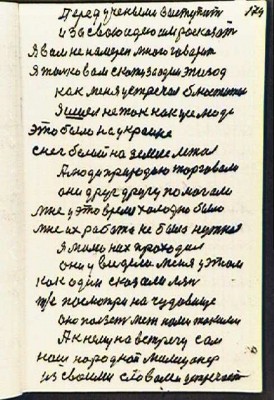 174
Перед учеными выступит
и за свою идею им расскажет
Я вам не намерен много говорит
Я только вам скажу за один эпизод
как меня устречал блюститель
Я ишел не так как усе люди
Это было на украине
снег белый на земле лежал
А люди природою торговали
они друг другу помогали
Мне у это время холодно было
мне их работа не была нужна
Я мимо них проходил
они увидели меня у этом
как один сказал
посмотри на чудовище
оно ползет меж нами такими
А к нему на встречу сам
наш народной милиционер
из своими словами устречает